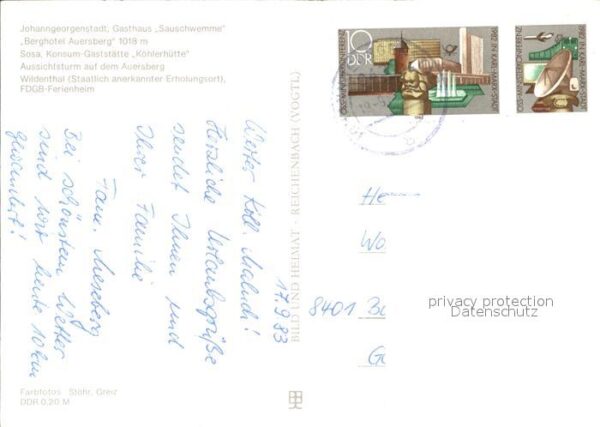 Johanngeorgenstadt, Gasthaus „Sauschwemme"
„Berghotel Auersberg" 1018 m
Sosa, Konsum-Gaststätte „Köhlerhütte"
Aussichtsturm auf dem Auersberg
Wildenthal (Staatlich anerkannter Erholungsort),
FDGB-Ferienheim
10
DDR
17.9.83
Werter Koll.
Herzliche Urlaubsgrüße
sendet Ihnen und
Ihrer Familie
Fam. Meseberg
Bei schönstem Wetter
sind wir heute 10 km
gewandert!
BILD UND HEIMAT - REICHENBACH (VOGTL)
He
Wo
8401
G
privacy protection
Datenschutz
Farbfotos Stöhr, Greiz
DDR 0,20 M